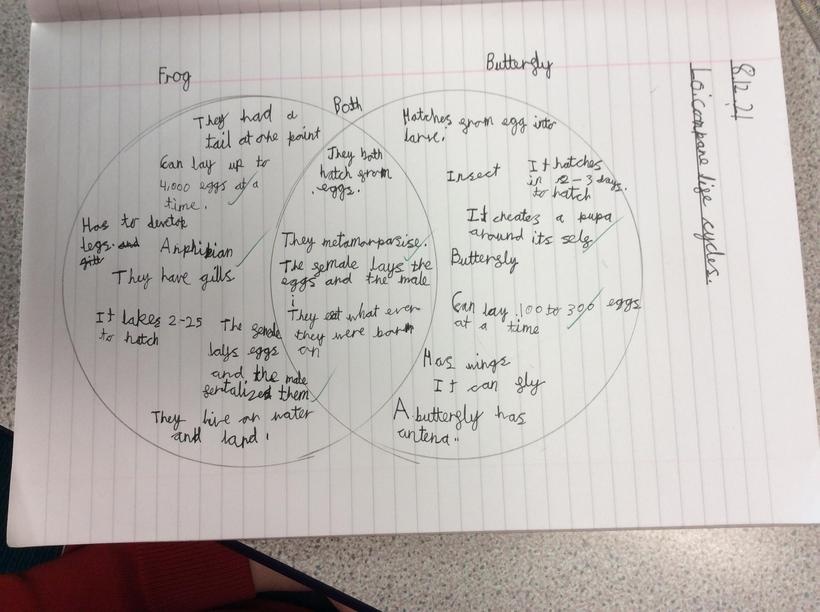 8.12.21
L.O. compare life cycles.
Frog
Both
Butterfly
They had a
tail at one point
Can lay up to
4,000 eggs at a
time.
Has to develop
legs. and
gill
Amphibian
They have gills
It takes 2-25
to hatch
The female
lays eggs
and the male
fertalized them
They live on water
and land.
They both
hatch from
eggs.
They metamorpasise.
The female lays the
eggs and the male
i
They eat what ever
they were born
on
Hatches from egg into
larve.
Insect
It hatches
in 2-3 days.
to hatch
It cheates a pupa
around its self
Butterfly
Can lay 100 to 300 eggs
at a time
Has wings
It can fly
A butterfly has
antena..